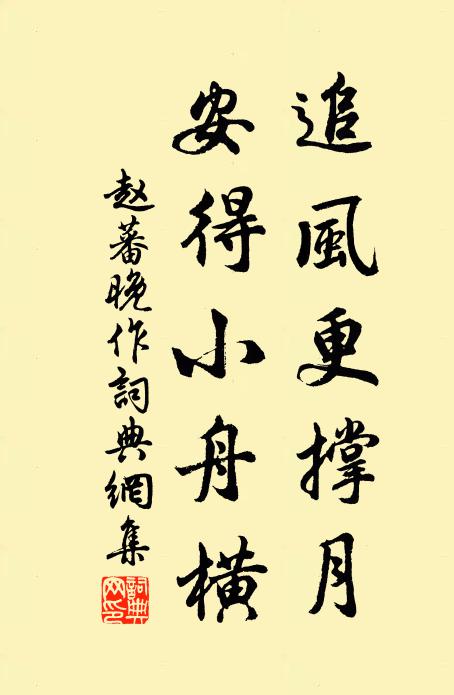 追風更撐月
安得小舟橫
赵蕃晚作詞典網集
詞典网印